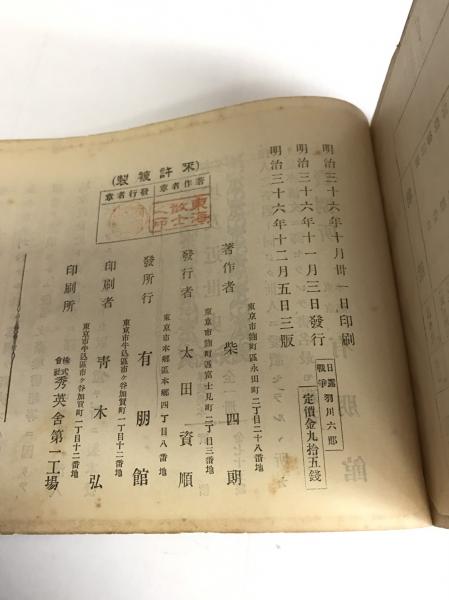 明治三十六年十月卅一日印刷
明治三十六年十一月三日發行
明治三十六年十二月五日三版
日露
戰爭
羽川六郎
定價金九拾五錢
東京市麹町區永田町二丁目二十八番地
著作者 柴四朗
東京市麹町區富士見町二丁目三番地
發行者 太田資順
東京市本郷區本郷四丁目八番地
發所行 有朋館
東京市牛込區市ヶ谷加賀町一丁目十二番地
印刷者 青木弘
東京市牛込區市ヶ谷加賀町一丁目十二番地
印刷所 株式會社 秀英舍第一工場
(不許複製)
著作者章
發行者章
東海
散士
之印